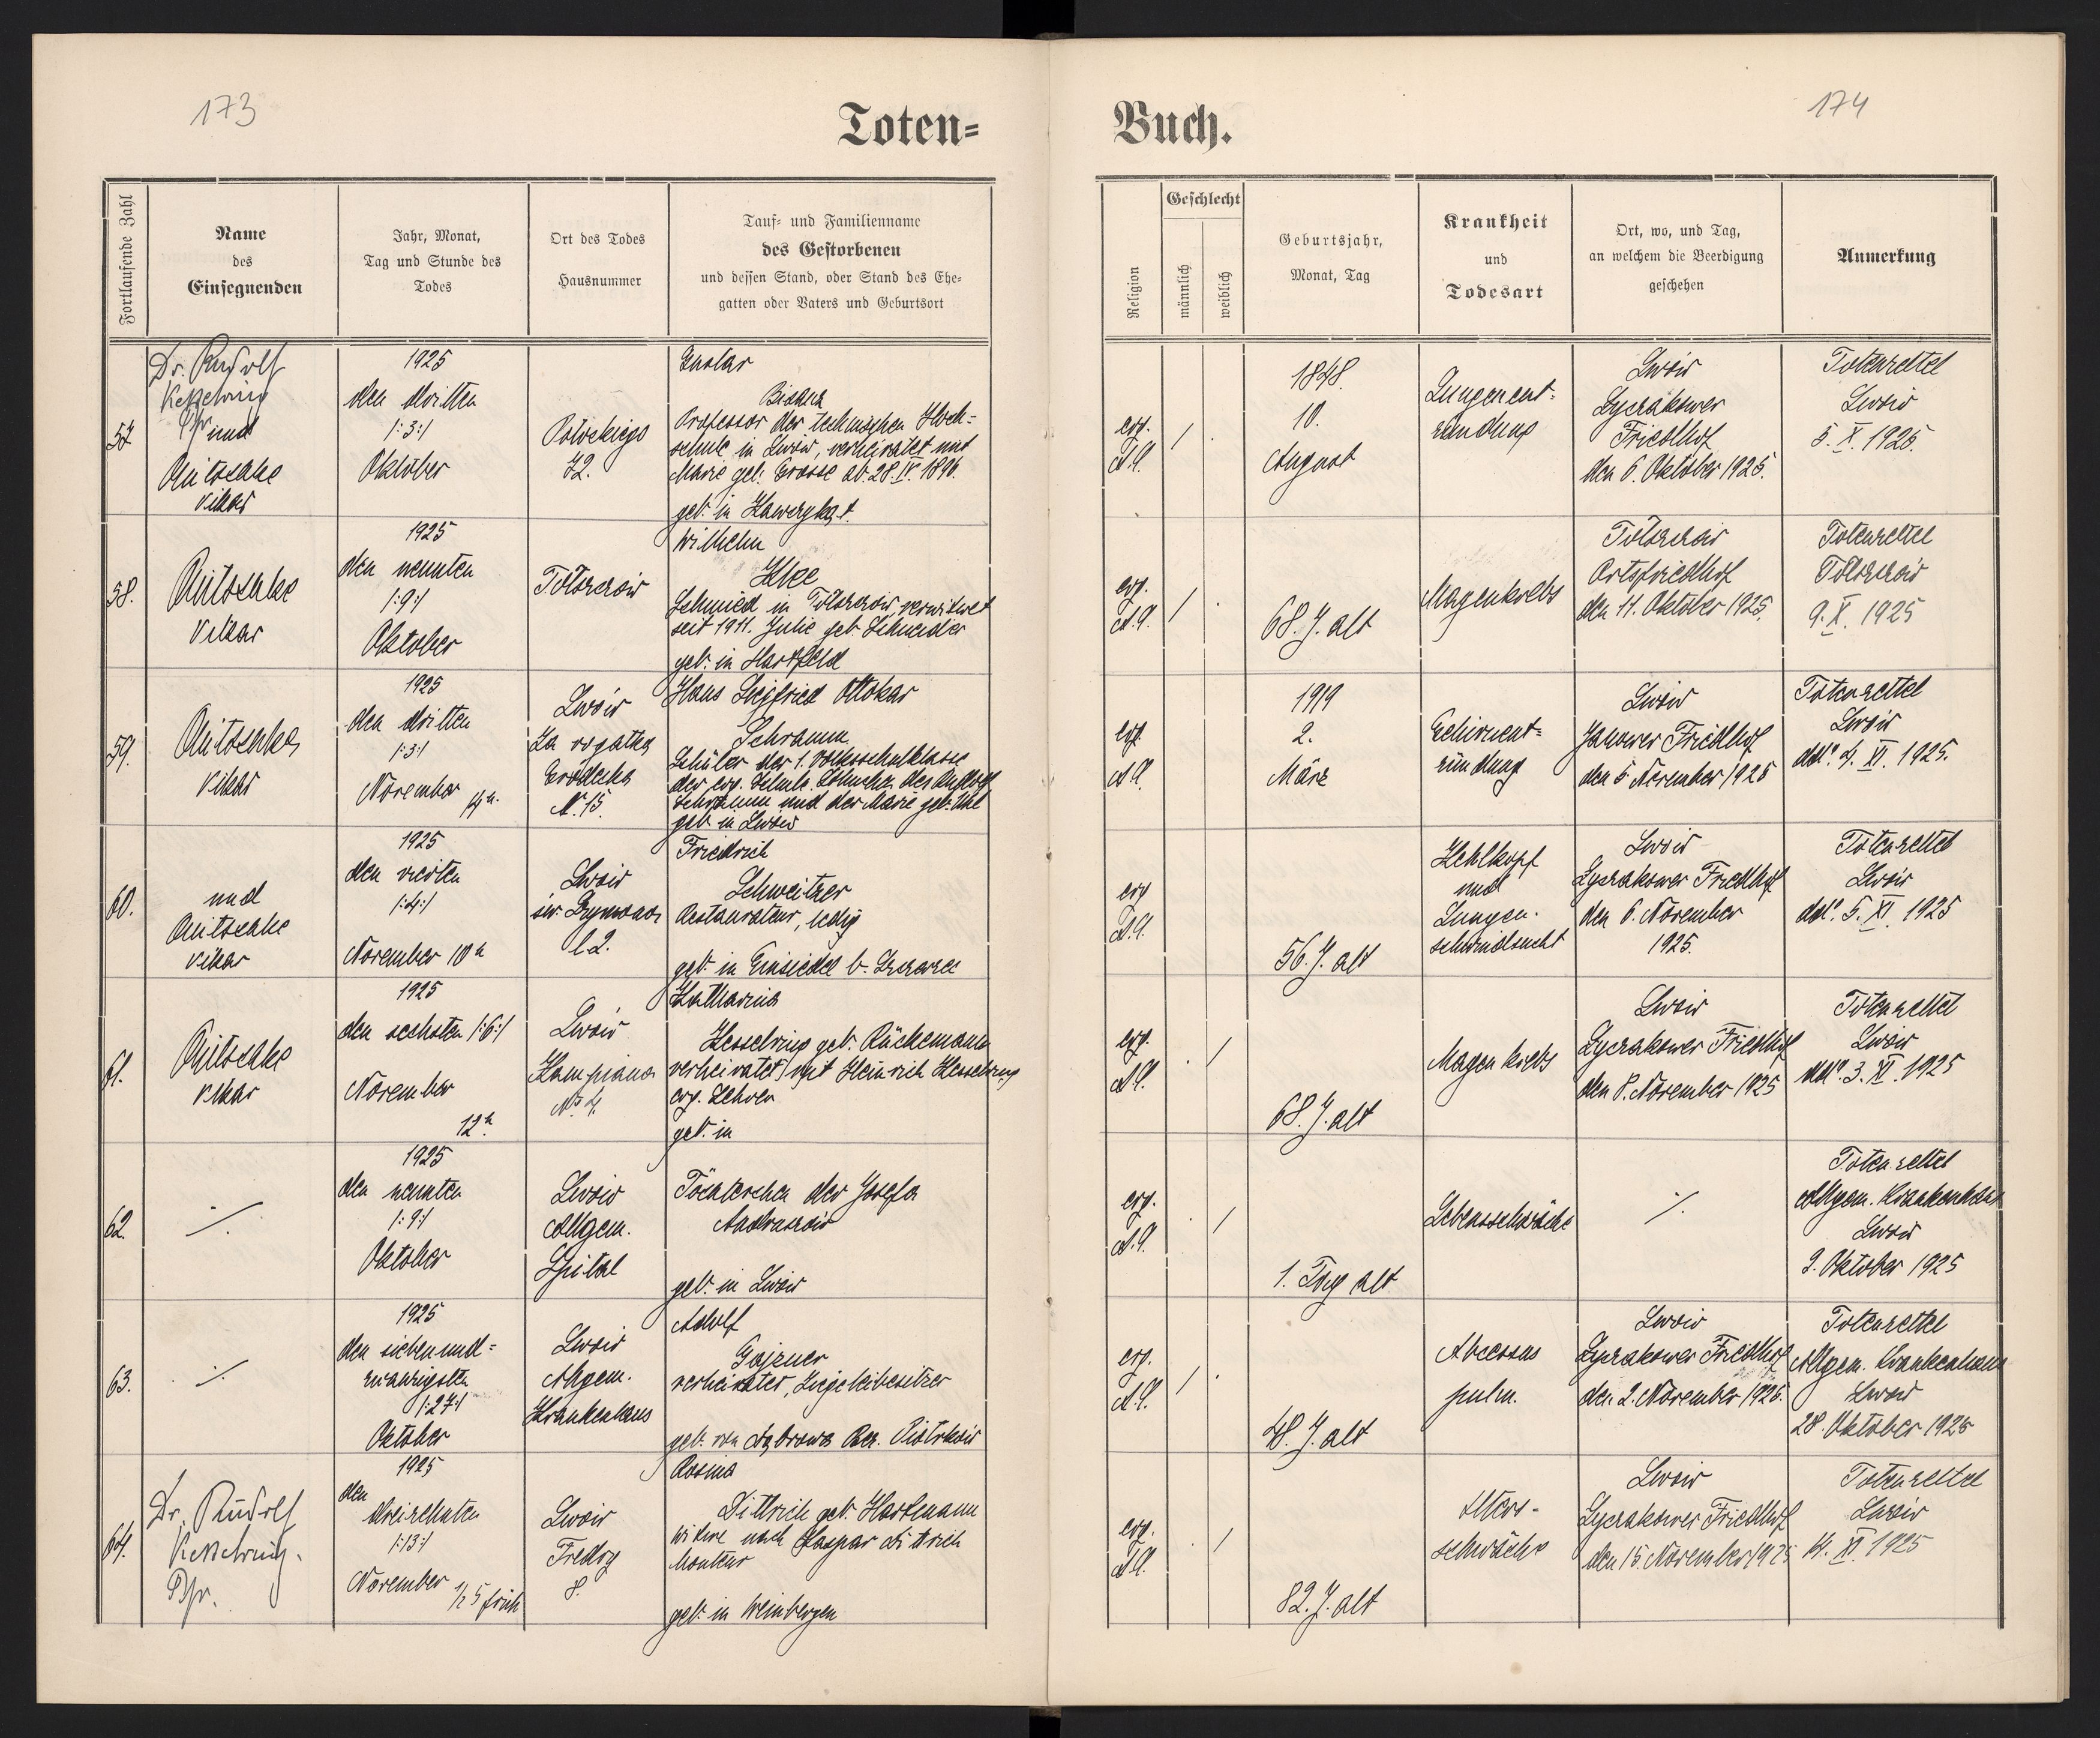 173
Toten=
Fortlaufende Zahl
Name
des
Einsegnenden
Jahr, Monat,
Tag und Stunde des
Todes
Ort des Todes
Hausnummer
Tauf= und Familienname
des Gestorbenen
und dessen Stand, oder Stand des Ehe=
gatten oder Vaters und Geburtsort
57.
Dr. Rudolf
Kesselring
Pfr und
Vikar
1925
den dritten
/:3:/
Oktober
72.
Gustav
Professor der technischen Hoch=
schule in Lwów, verheiratet mit
Marie geb. Grosse ab. 28. IV. 1896.
geb. in
58.
Vikar
1925
den neunten
/:9:/
Oktober
Tołszczów
Wilhelm
Schmied in Tołszczów verwitwet
seit 1911. Julie geb. Schneider
geb. in Hartfeld
59.
Vikar
1925
den dritten
/:3:/
November
Lwów
Za rogatką
Gródecka
N. 15.
Hans Siegfried Ottokar
Schramm
Schüler der 1. Volksschulklasse
der evg. Schule. Söhnchen des Rudolf
Schramm und der Marie geb. Uhl
geb. in Lwów
60.
und
Vikar
1925
den vierten
/:4:/
November 10 h
Lwów
l. 2.
Friedrich
Schweitzer
Restaurateur, ledig
geb. in Einsiedel b. Szczerzec
61.
Vikar
1925
den sechsten /:6:/
November
12 h.
Lwów
Kampiana
No 4.
Katharina
Kesselring geb. Rückemann
verheiratet mit Heinrich Kesselring
evg. Lehrer
geb. in
62.
./.
1925
den neunten
/:9:/
Oktober
Lwów
Allgem.
Spital
Töchterchen der Josefa
geb. in Lwów
63.
./.
1925
den siebenund=
zwanzigsten
/:27:/
Oktober
Lwów
Allgem.
Krankenhaus
Adolf
Gajzner
verheiratet, Ziegeleibesitzer
geb. von Dąbrowa Bez. Piotrków
64.
Dr. Rudolf
Kesselring.
Pfr.
1925
den
dreizehnten
/:13:/
November ½ 5 früh
Lwów
Fredry
8.
Rosina
Dittrich geb. Hartmann
Witwe nach Kaspar Dittrich
Monteur
geb. in Weinbergen
174
Buch.
Religion
Geschlecht
männlich
weiblich
Geburtsjahr,
Monat, Tag
Krankheit
und
Todesart
Ort, wo, und Tag,
an welchem die Beerdigung
geschehen
Anmerkung
evg.
A.C.
/
.
1848.
10.
August
Lungenent=
zündung
Lwów
Lyczakower
Friedhof
den 6. Oktober 1925.
Totenzettel
Lwów
5. X. 1925.
evg.
A.C.
/
.
68. J. alt
Magenkrebs
Tołszczów
Ortsfriedhof
den 11. Oktober 1925.
Totenzettel
Tołszczów
9. X. 1925
evg.
A.C.
1919
2.
März
Gehirnent=
zündung
Lwów
Janower Friedhof
den 5 November 1925
Totenzettel
Lwów
ddo. 4. XI. 1925.
evg
A.C.
56. J. alt
Kehlkopf
und
Lungen.
schwindsucht
Lwów
Lyczakower Friedhof
den 6. November
1925.
Totenzettel
Lwów
ddo. 5. XI. 1925
evg.
A.C.
.
/
68. J. alt
Magenkrebs
Lwów
Lyczakower Friedhof
den 8. November 1925
Totenzettel
Lwów
ddo. 3. XI. 1925
evg.
A.C.
.
/
1. Tag alt
Lebensschwäche
./.
Totenzettel
Allgem. Krankenhaus
Lwów
9. Oktober 1925
evg.
A.C.
/
.
48. J. alt
Abcessus
pulm.
Lwów
Lyczakower Friedhof
den 2. November 1925.
Totenzettel
Allgem. Krankenhaus
Lwów
28. Oktober 1925
evg.
A.C.
.
/
82. J. alt
Alters-
schwäche
Lwów
Lyczakower Friedhof
den 15. November 1925
Totenzettel
Lwów
14. XI. 1925